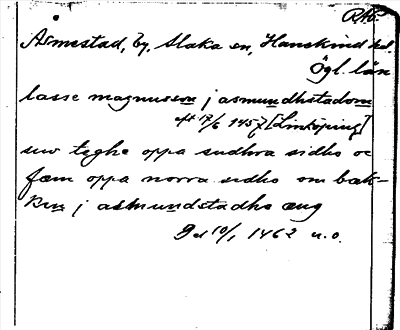 RAp.
Åsmestad, by, Slaka sn, Hanekind hd.
Ögl. län
lasse magnusson j asmundhstadom
eft 17/6 1457 [Linköping]
siw teghe oppa sudhra sidho oc
fæm oppa norra sidho om bæk-
ken j asmundstadhs æng
Dat 10/1 1462 u.o.